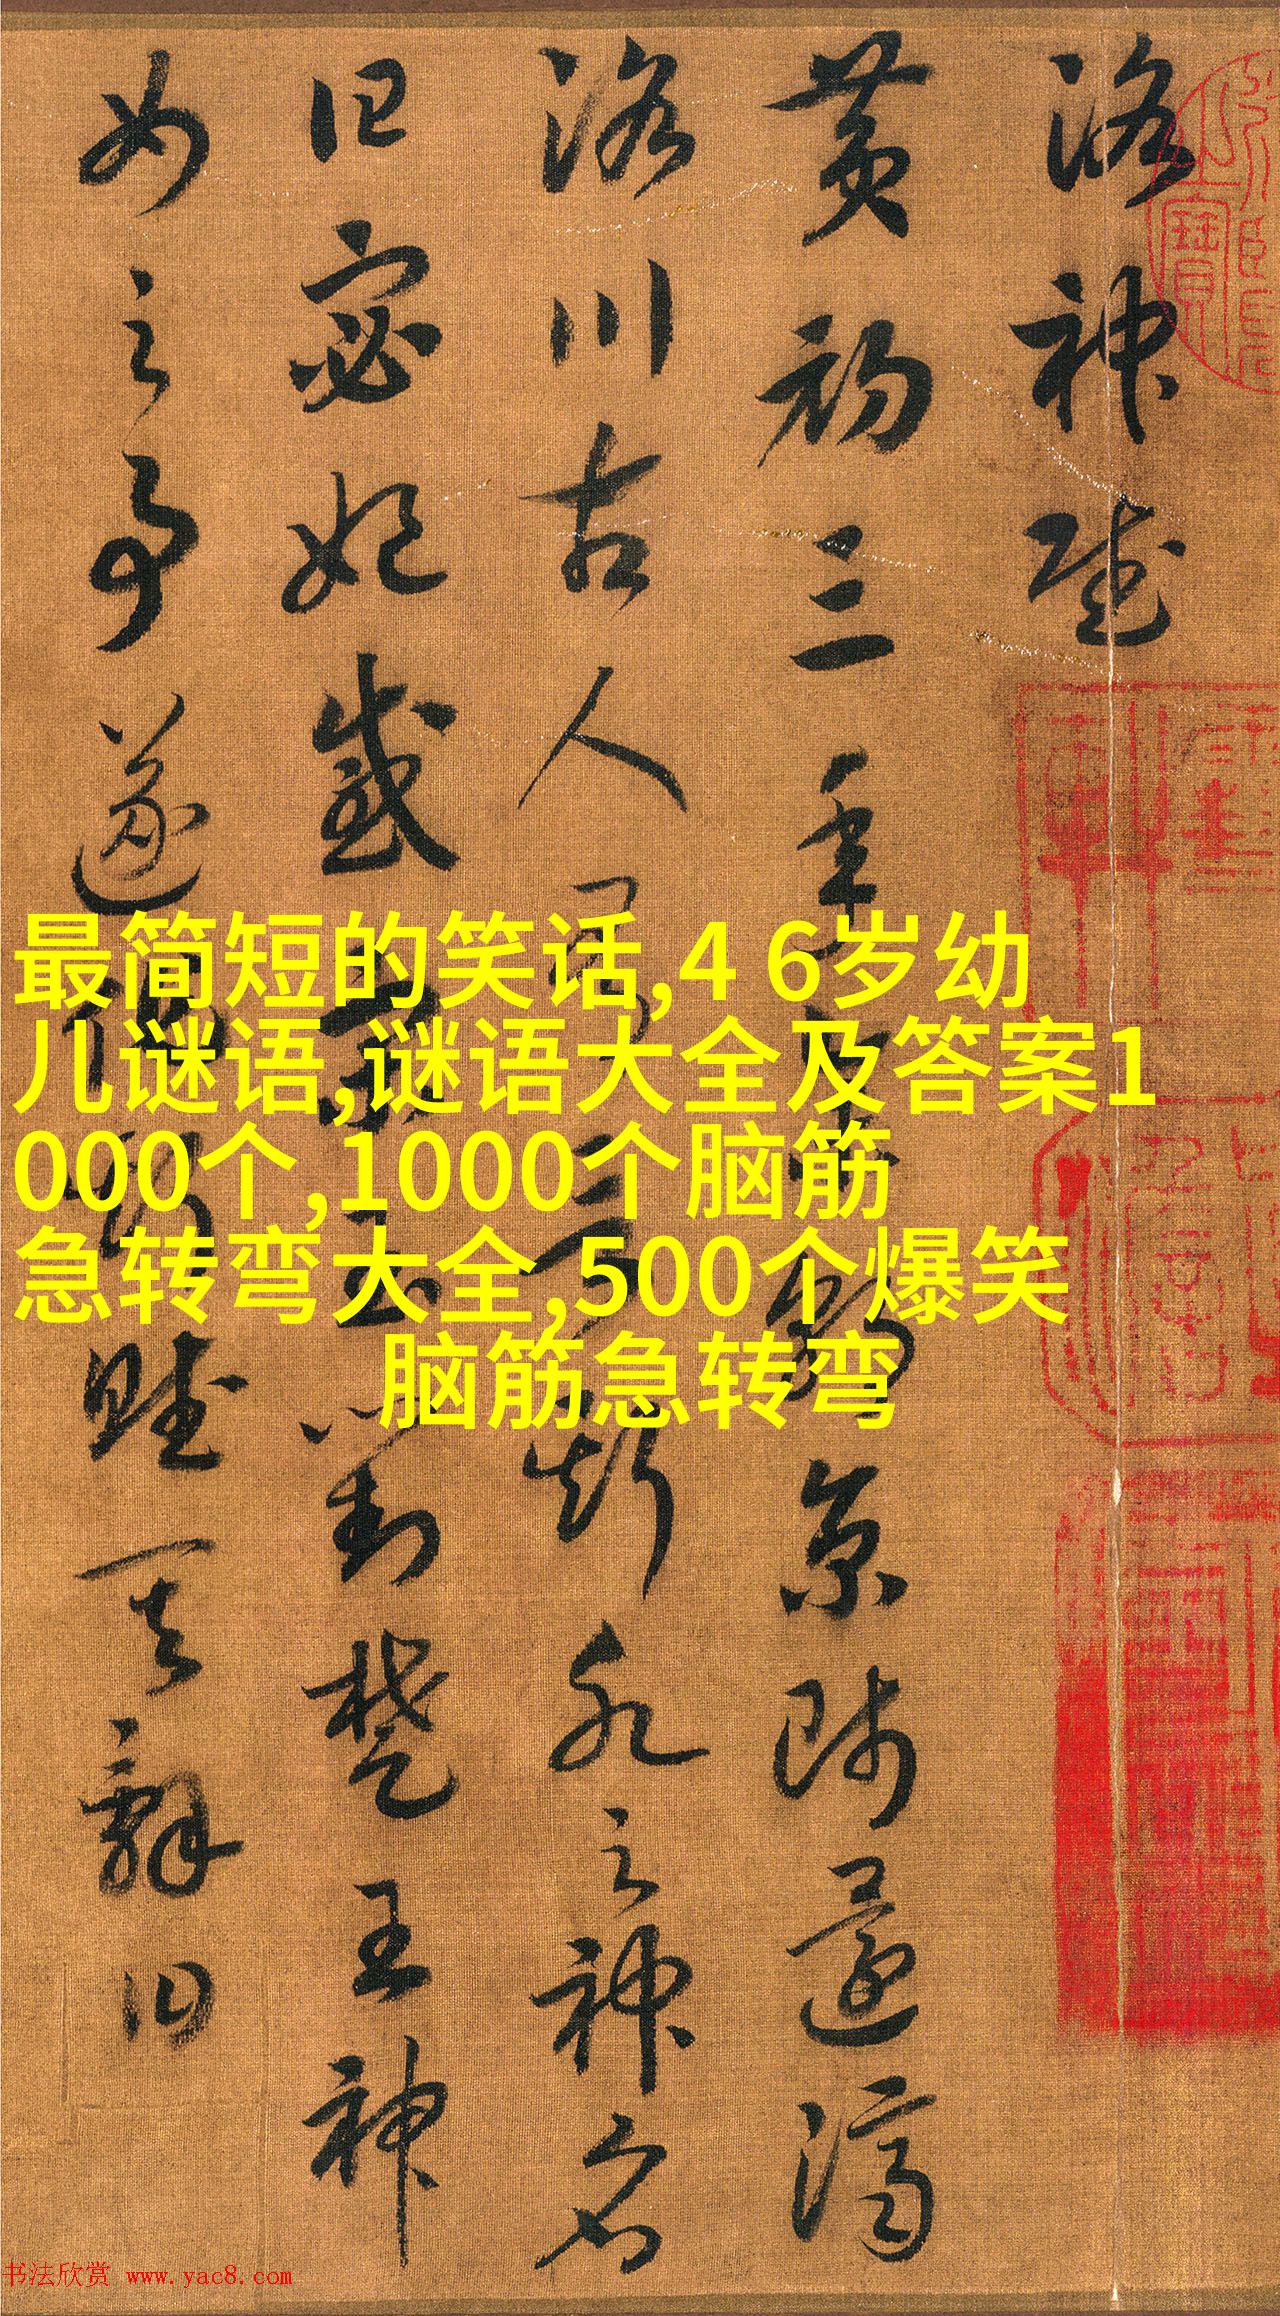 洛神賦
黃初三年余朝京師還濟
洛川古人有言斯水之神名
曰宓妃感宋玉對楚王神
女之事遂作斯賦其辭曰
最简短的笑话,4 6岁幼
儿谜语,谜语大全及答案1
000个,1000个脑筋
急转弯大全,500个爆笑
脑筋急转弯
书法欣赏 www.yac8.com